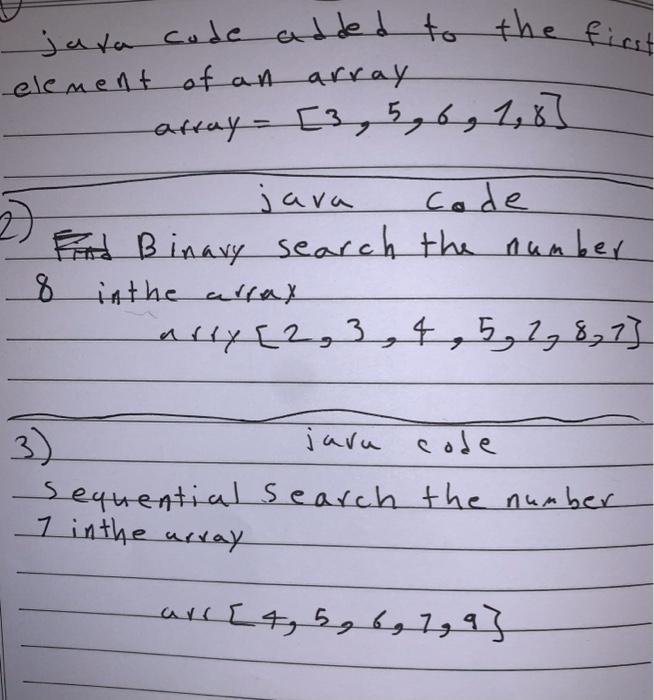 java code added to the first
element of an array
array = [3, 5, 6, 7, 8]
2) java code
Binary search the number
8 inthe array
arry [2, 3, 4, 5, 7, 8, 7]
3) java code
Sequential Search the number
7 inthe array
arr [4, 5, 6, 7, 9}